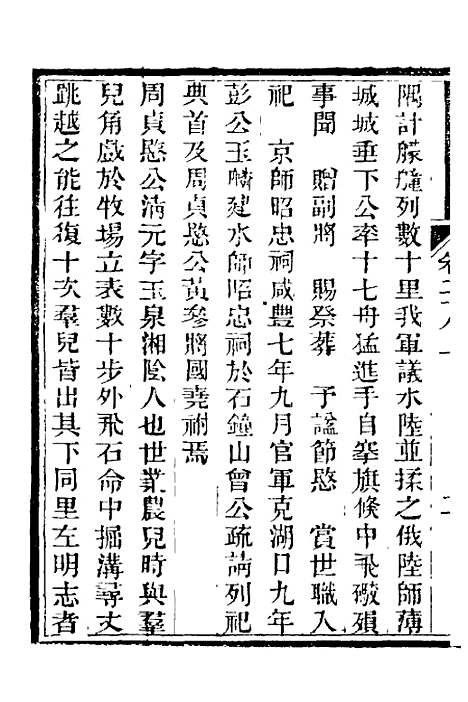 卷二十八
隅計艨艟列數十里我軍議水陸並揉之俄陸師薄
城城垂下公率十七舟猛進手自搴旗倏中飛礮殞
事聞　贈副將　賜祭葬　予諡節愍　賞世職入
祀　京師昭忠祠咸豐七年九月官軍克湖口九年
彭公玉麟建水師昭忠祠於石鐘山曾公疏請列祀
典首及周貞愍公黃參將國堯祔焉
周貞愍公淸元字玉泉湘陰人也世業農兒時與羣
兒角戲於牧場立表數十步外飛石命中掘溝尋丈
跳越之能往復十次羣兒皆出其下同里左明志者